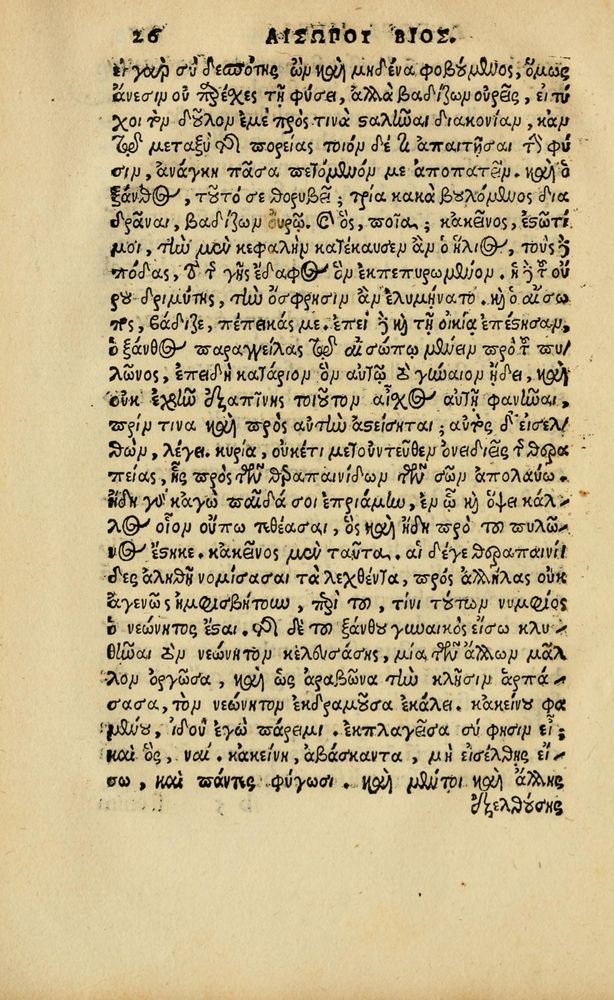 26 ΑΙΣΩΠΟΥ ΒΙΟΣ.
εἰ γὰρ σὺ δεσπότης ὢν καὶ μηδένα φοβούμενος, ὅμως
ἄνεσιν οὐ παρέχεις τῇ φύσει, ἀλλὰ βαδίζων οὐρεῖς, εἰ τύ
χοι τὸν δοῦλον ἐμὲ πρός τινα σταλῆναι διακονίαν, κἀν
τῷ μεταξὺ τῆς πορείας ποιόν δέ τι ἀπαιτῆσαι τὴν φύ
σιν, ἀνάγκη πᾶσα πετόμενόν με ἀποπατεῖν. καὶ ὁ
ξάνθος, τοῦτό σε θορυβεῖ; τρία κακὰ βουλόμενος δια
δρᾶναι, βαδίζων οὐρῶ. ὁ δς, ποῖα; κἀκεῖνος, ἑστῶτί
μοι, τὴν μὲν κεφαλὴν κατέκαυσεν ἂν ὁ ἥλιος, τοὺς δὲ
πόδας, τὸ τῆς γῆς ἔδαφος ὂν ἐκπεπυρωμένον. ἡ δὲ τοῦ οὔ
ρου δριμύτης, τὴν ὄσφρησιν ἂν ἐλυμήνατο. καὶ ὁ αἴσω
πος, βάδιζε, πέπεικάς με. ἐπεὶ δὲ καὶ τῇ οἰκίᾳ ἐπέστησαν,
ὁ ξάνθος παραγγείλας τῷ αἰσώπῳ μένειν πρὸ τοῦ πυ/
λῶνος, ἐπειδὴ κατάριον ὂν αὐτῷ τὸ γύναιον ᾔδει, καὶ
οὐκ ἐχρῆν ἐξαπίνης τοιοῦτον αἶσχος αὐτῇ φανῆναι,
πρίν τινα καὶ πρὸς αὐτὴν ἀστείσηται; αὐτὸς δ' εἰσελ/
θὼν, λέγει. κυρία, οὐκέτι μετοὐντεῦθεν ὀνειδιεῖς τὰ θερα
πείας, ἧς πρὸς τῶν θεραπαινίδων τῶν σῶν ἀπολαύω.
ἤδη γὰρ κἀγὼ παῖδά σοι ἐπριάμην, ἐν ᾧ καὶ ὄψει κάλ/
λος οἷον οὔπω τεθέασαι, ὃς καὶ ἤδη πρὸ τοῦ πυλῶ/
νος ἕστηκε. κἀκεῖνος μὲν ταῦτα. αἱ δέγε θεραπαινί/
δες ἀληθῆ νομίσασαι τὰ λεχθέντα, πρὸς ἀλλήλας οὐκ
ἀγενῶς ἠμφισβήτουν, περὶ τοῦ, τίνι τούτων νυμφίος
ὁ νεώνητος ἔσται. τῆς δὲ τοῦ ξάνθου γυναικὸς εἴσω κλη/
θῆναι τὸν νεώνητον κελευσάσης, μία τῶν ἄλλων μᾶλ/
λον ὀργῶσα, καὶ ὡς ἀραβῶνα τὴν κλῆσιν ἁρπά/
σασα, τὸν νεώνητον ἐκδραμοῦσα ἐκάλει. κἀκείνου φα
μένου, ἰδοὺ ἐγὼ πάρειμι. ἐκπλαγεῖσα σύ φησιν εἶ;
καὶ ὃς, ναί. κἀκείνη, ἀβάσκαντα, μὴ εἰσέλθῃς εἴ/
σω, καὶ πάντες φύγωσι. καὶ μέντοι καὶ ἄλλης
ἐξελθούσης